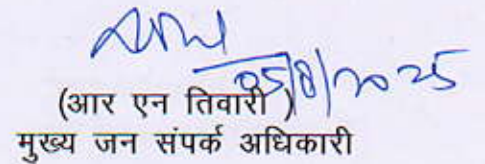 05/8/2025
(आर एन तिवारी )
मुख्य जन संपर्क अधिकारी